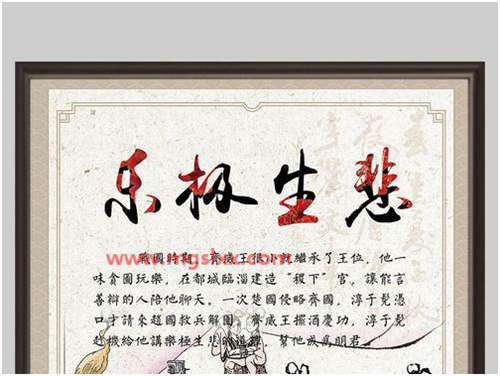 乐极生悲
戰國時期，齊威王很小就繼承了王位，他一
味貪圖玩樂，在都城臨淄建造“稷下”宮，讓能言
善辯的人陪他聊天。一次楚國侵略齊國，淳于髡憑
口才請來趙國救兵解圍，齊威王擺酒慶功，淳于髡
趁機給他講樂極生悲的道理，幫他成爲明君。